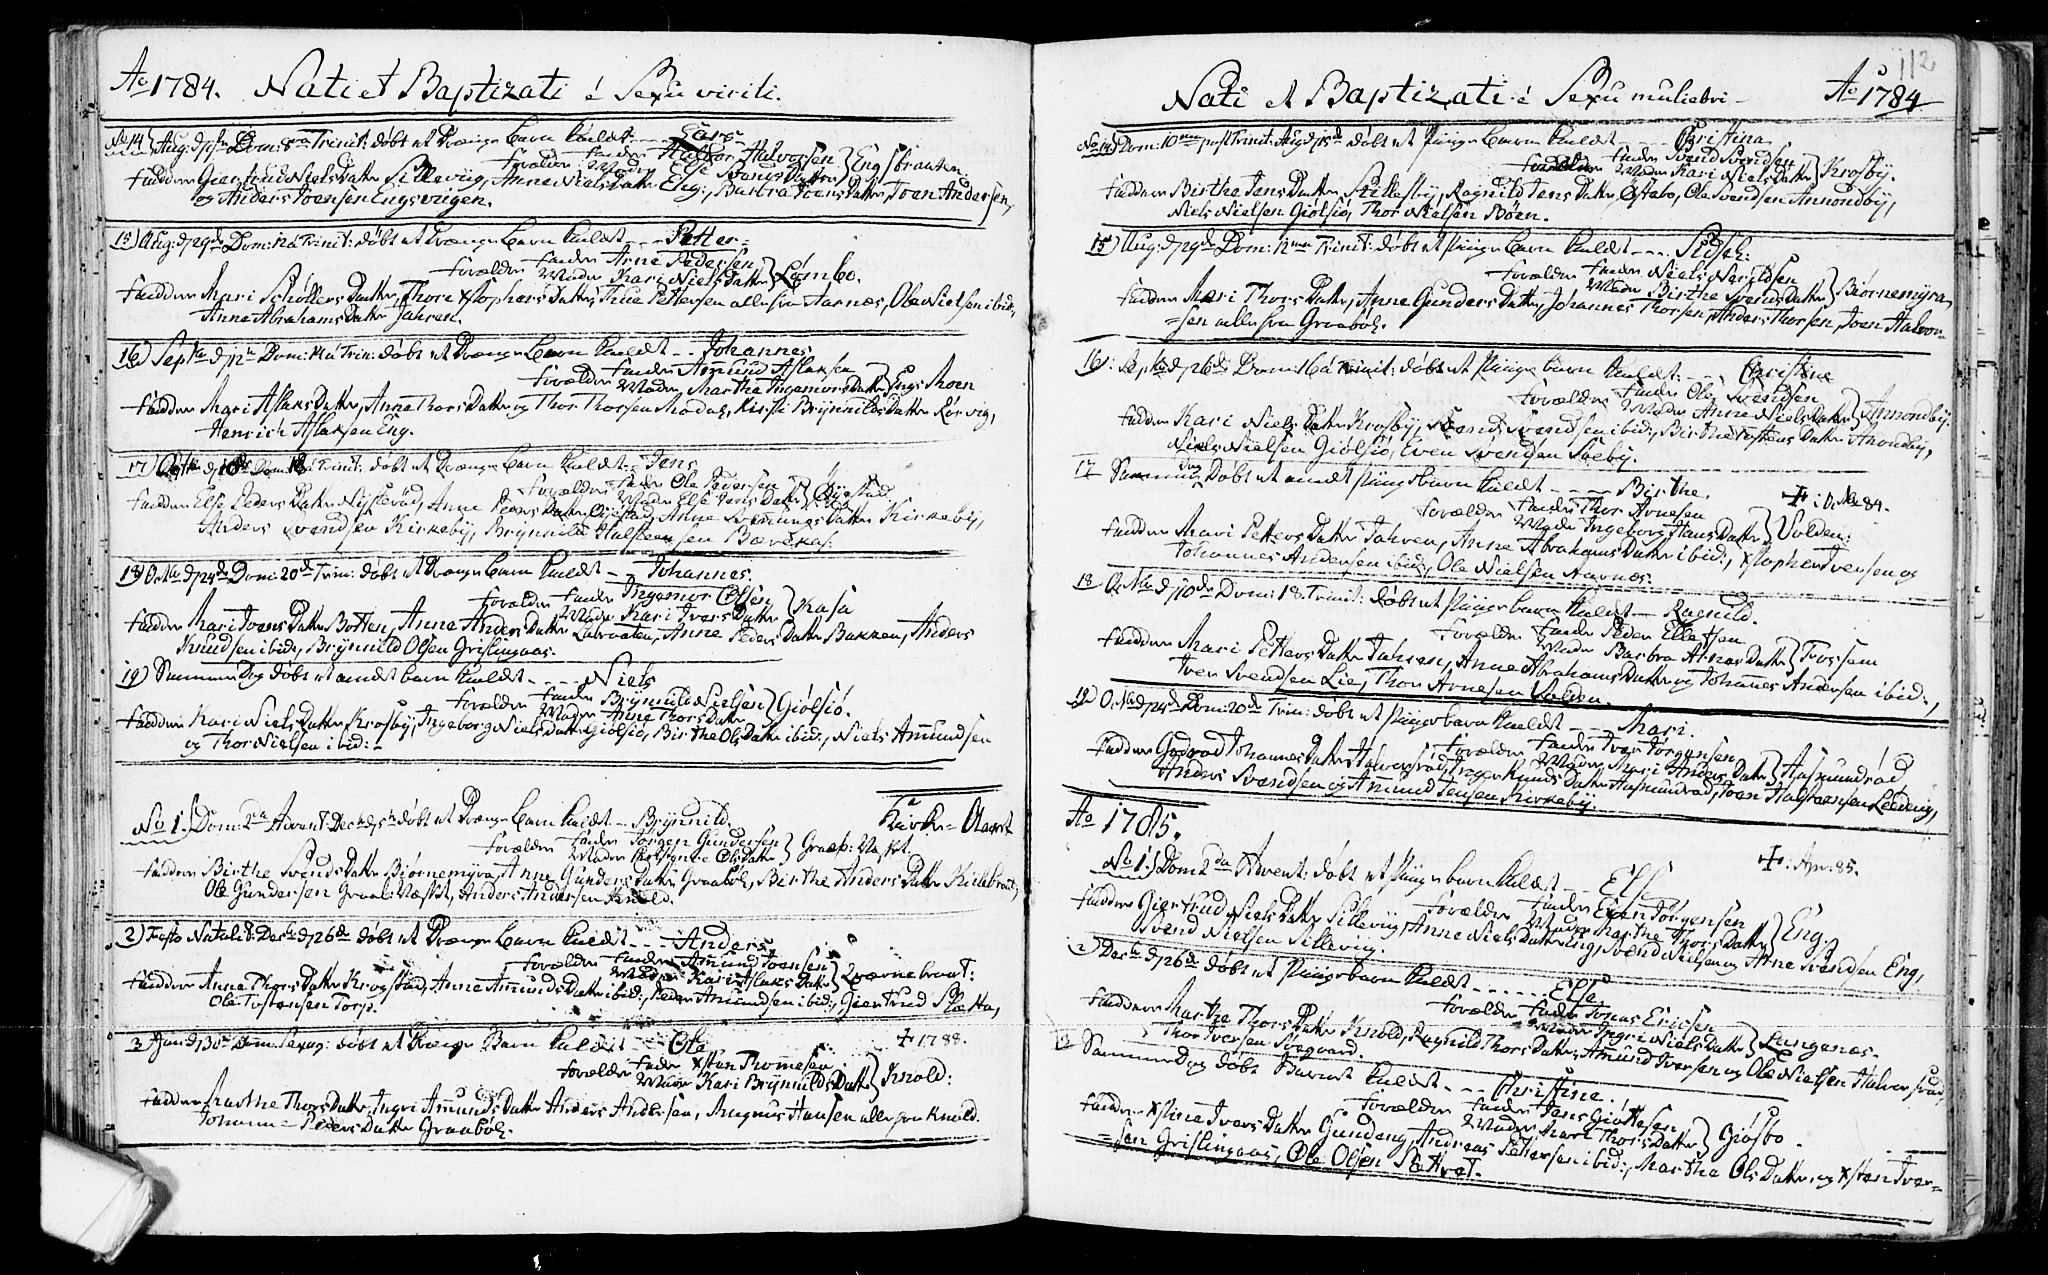 Ao 1784. Nati et Baptizati é Sexu virili.
No 14) Aug: d: 1ste Dom: 8va Trinit: døbt et Drænge barn kaldt - - Lars
Forældre Fader Halvor Halvorsen Moder Else SvendsDatter } Engsbraaten.
Faddere Giertrud NielsDatter Sillevig, Anne NielsDatter Eng, Barbra IversDatter, Iven Andersen,
og Anders Joensen Engsvigen.
15) Aug: d: 29de Dom: 12 á Trinit: døbt et Drænge barn kaldt - - - Petter -
Forældre Fader Arne Pedersen Moder Kari NielsDatter } Lømbo.
Faddere Mari SchøttersDatter, Thore XstophersDatter, Thue Pettersen alle fra Aarnæs, Ole Nielsen ibid,
Anne AbrahamsDatter Jahren.
16) Septbr d: 12te Dom: 14 á Trin: døbt et Drænge barn kaldt - - Johannes
Forældre Fader Amund Aslaksen Moder Marthe IngemorsDatter } Engs Moen
Faddere Mari AslaksDatter, Anne ThorsDatter og Thor Thorsen Modas, Kirsti BrynnildsDatter Rørvig,
Henrich Aslaksen Eng.
17) Octbr d: 10de Dom: 18 á Trinit: døbt et Drænge barn kaldt - Jens
Forældre Fader Ole Pedersen Moder Else JensDatter } Øjestad
Faddere Else PedersDatter Nisterød, Anne PedersDatter Øjestad, Anne SvenningsDatter Kirkebÿ,
Anders Svendsen Kirkebÿ, Brynnild Halsteensen Bævekas.
18) Octbr d: 24de Dom: 20de Trin: døbt et Drænge barn kaldt - Johannes.
Forældre Fader Ingemor Olsen Moder Kari IversDatter } Kasa
Faddere Mari IversDatter Botten, Anne AndersDatter Labraaten, Anne PedersDatter Bakken, Anders
Knudsen ibid, Brynnild Olsen Grislingaas.
19) Samme Dag døbt et andet barn kaldt - - - - Niels
Forældre Fader Brynnild Nielsen Moder Anne ThorsDatter } Giølsiø.
Faddere Kari NielsDatter Krosbÿ, Ingeborg NielsDatter Giølsiø, Birthe OlsDatter ibid:, Niels Amundsen
og Thor Nielsen ibid: -
Kirke- Aaret
No 1.) Dom: 2da Advent: Decbr d: 5te døbt et Drænge barn kaldt - Brynnild.
Forældre Fader Jørgen Gundersen Moder OlsDatter } Graab: Næsket.
Faddere Birthe SvendsDatter Biørnemyra, Anne GundersDatter Graaböl, Birthe AndersDatter Killebraat,
Ole Gundersen Graab:Næsket, Anders Andersen Knold.
2) Festo Natalis: Decbr d: 26de døbt et Drænge barn kaldt - - Anders.
Forældre Fader Amund Joensen Moder Kari AslaksDatter } Qværnebraat:
Faddere Anne ThorsDatter Krogstad, Anne AmundsDatter ibid:, Peder Amundsen ibid:, Giertrud Slætta,
Ole Tostensen Torp.
3 Jan d: 30te Dom: Sexag: døbt et Drænge Barn kaldt - Ole ✝ 1788.
Forældre Fader Xsten Thomesen Moder Kari BrynnildsDatter } Knold:
Faddere Marthe ThorsDatter, Ingri AmundsDatter, Anders Andersen, Magnus Hansen alle fra Knold.
Johanne PedersDatter Graaböl.
112
Nati et Baptizati é Sexu muliebri - Ao 1784
No 14) Dom: 10ma post Trinit: Aug d: 15de døbt et Pige barn kaldt - - Christina
Forældre Fader Svend Svendsen Moder Kari NielsDatter } Krosbÿ.
Faddere Birthe JensDatter Stillesbÿ, Ragnild JensDatter Østebo, Ole Svendsen Annondbÿ,
Niels Nielsen Giølsiø, Thor Nielsen Bøen.
15) Aug: d: 29de Dom: 12ma Trinit: døbt et Pige barn kaldt - - - - Sidsel:
Forældre Fader Niels Nerildsen Moder Birthe SvendsDatter } Biørnemÿra
Faddere Mari ThorsDatter, Anne GundersDatter, Johannes Thorsen, Anders Thorsen, Joen Halvor-
=sen alle fra Graaböl.
16): Septbr d: 26de Dom: 16 á Trinit: døbt et Pige barn kaldt: - - - Christine
Forældre Fader Ole Svendsen Moder Anne NielsDatter } Annondbÿ.
Faddere Kari NielsDatter Krosbÿ, Svend Svendsen ibid:, Birthe TostensDatter Anondbÿ,
Niels Nielsen Giølsiø, Even Svendsen Saebÿ.
17 Samme Dag døbt et andet Pigebarn kaldt - - - - Birthe. ✝ : Octbr 84.
Forældre Fader Thor Arnesen Moder Ingeborg HansDatter } Volden:
Faddere Mari PettersDatter Jahren, Anne AbrahamsDatter ibid:, Xstopher Iversen og
Johannes Andersen ibid:, Ole Nielsen Aarnæs.
18 Octbr d: 10de Dom: 18. Trinit: døbt et Pige barn kaldt - Ragnild.
Forældre Fader Peder Ellefsen Moder Barbra ArnesDatter } Fossem
Faddere Mari PettersDatter Jahren, Anne AbrahamsDatter og Johannes Andersen ibid:,
Iver Svendsen Lie, Thor Arnesen Volden.
19) Octbr d: 24de Dom: 20de Trin: døbt et Pige barn kaldt - - Mari.
Forældre Fader Iver Jørgensen Moder Mari AndersDatter } Aasmundrød
Faddere Gudrød JohannesDatter Halvorsrød, Inger KnudsDatter Aasmundrød, Joen Halsteensen Leeding,
Anders Svendsen og Amund Jensen Kirkebÿ.
Ao 1785.
No 1:) Dom 2da Advent: døbt et Pige barn kaldt - - Else ✝ : Apr: 85.
Forældre Fader Even Jørgensen Moder Marthe ThorsDatter } Eng.
Faddere Giertrud NielsDatter Sillevig, Anne NielsDatter Eng, Svend Nielsen og Arne Svendsen Eng,
Svend Nielsen Sillevig.
2) Decbr d: 26de døbt et Pige barn kaldt - - - - - - Else
Forældre Fader Jonas Ericsen Moder Ingri NielsDatter } Langenæs.
Faddere Marthe ThorsDatter Knold, Ragnild ThorsDatter, Amund Iversen og Ole Nielsen Halvorsrød,
Thor Iversen Sørgaard.
3 Samme Dag døbt Barnet kaldt - - - Christine.
Forældre Fader Jens Giøttesen Moder Mari ThorsDatter } Giøsbo.
Faddere Xstine IversDatter Gundeng, Andreas Pettersen ibid:, Martha OlsDatter, og Xsten Iver=
=sen Grislingaas, Ole Olsen Slættet.